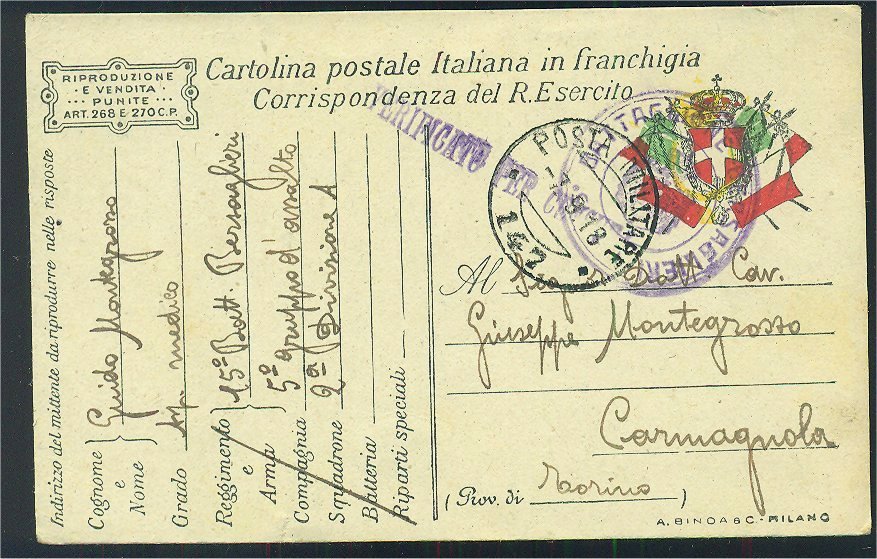 RIPRODUZIONE
E VENDITA
PUNITE
ART. 268 E 270 C.P.
Cartolina postale Italiana in franchigia
Corrispondenza del R. Esercito
VERIFICATO PER
POSTA MILITARE
14.9.18
142
Indirizzo del mittente da riprodurre nelle risposte
Cognome e Nome Guido Montegrosso
Grado medico
Reggimento e Arma 15º Batt. Bersaglieri
Compagnia 5º gruppo d'assalto
Squadrone 2ª Divisione A
Batteria
Riparti speciali
Al Cav.
Giuseppe Montegrosso
Carmagnola
(Prov. di Torino)
A. BINDA & C. - MILANO